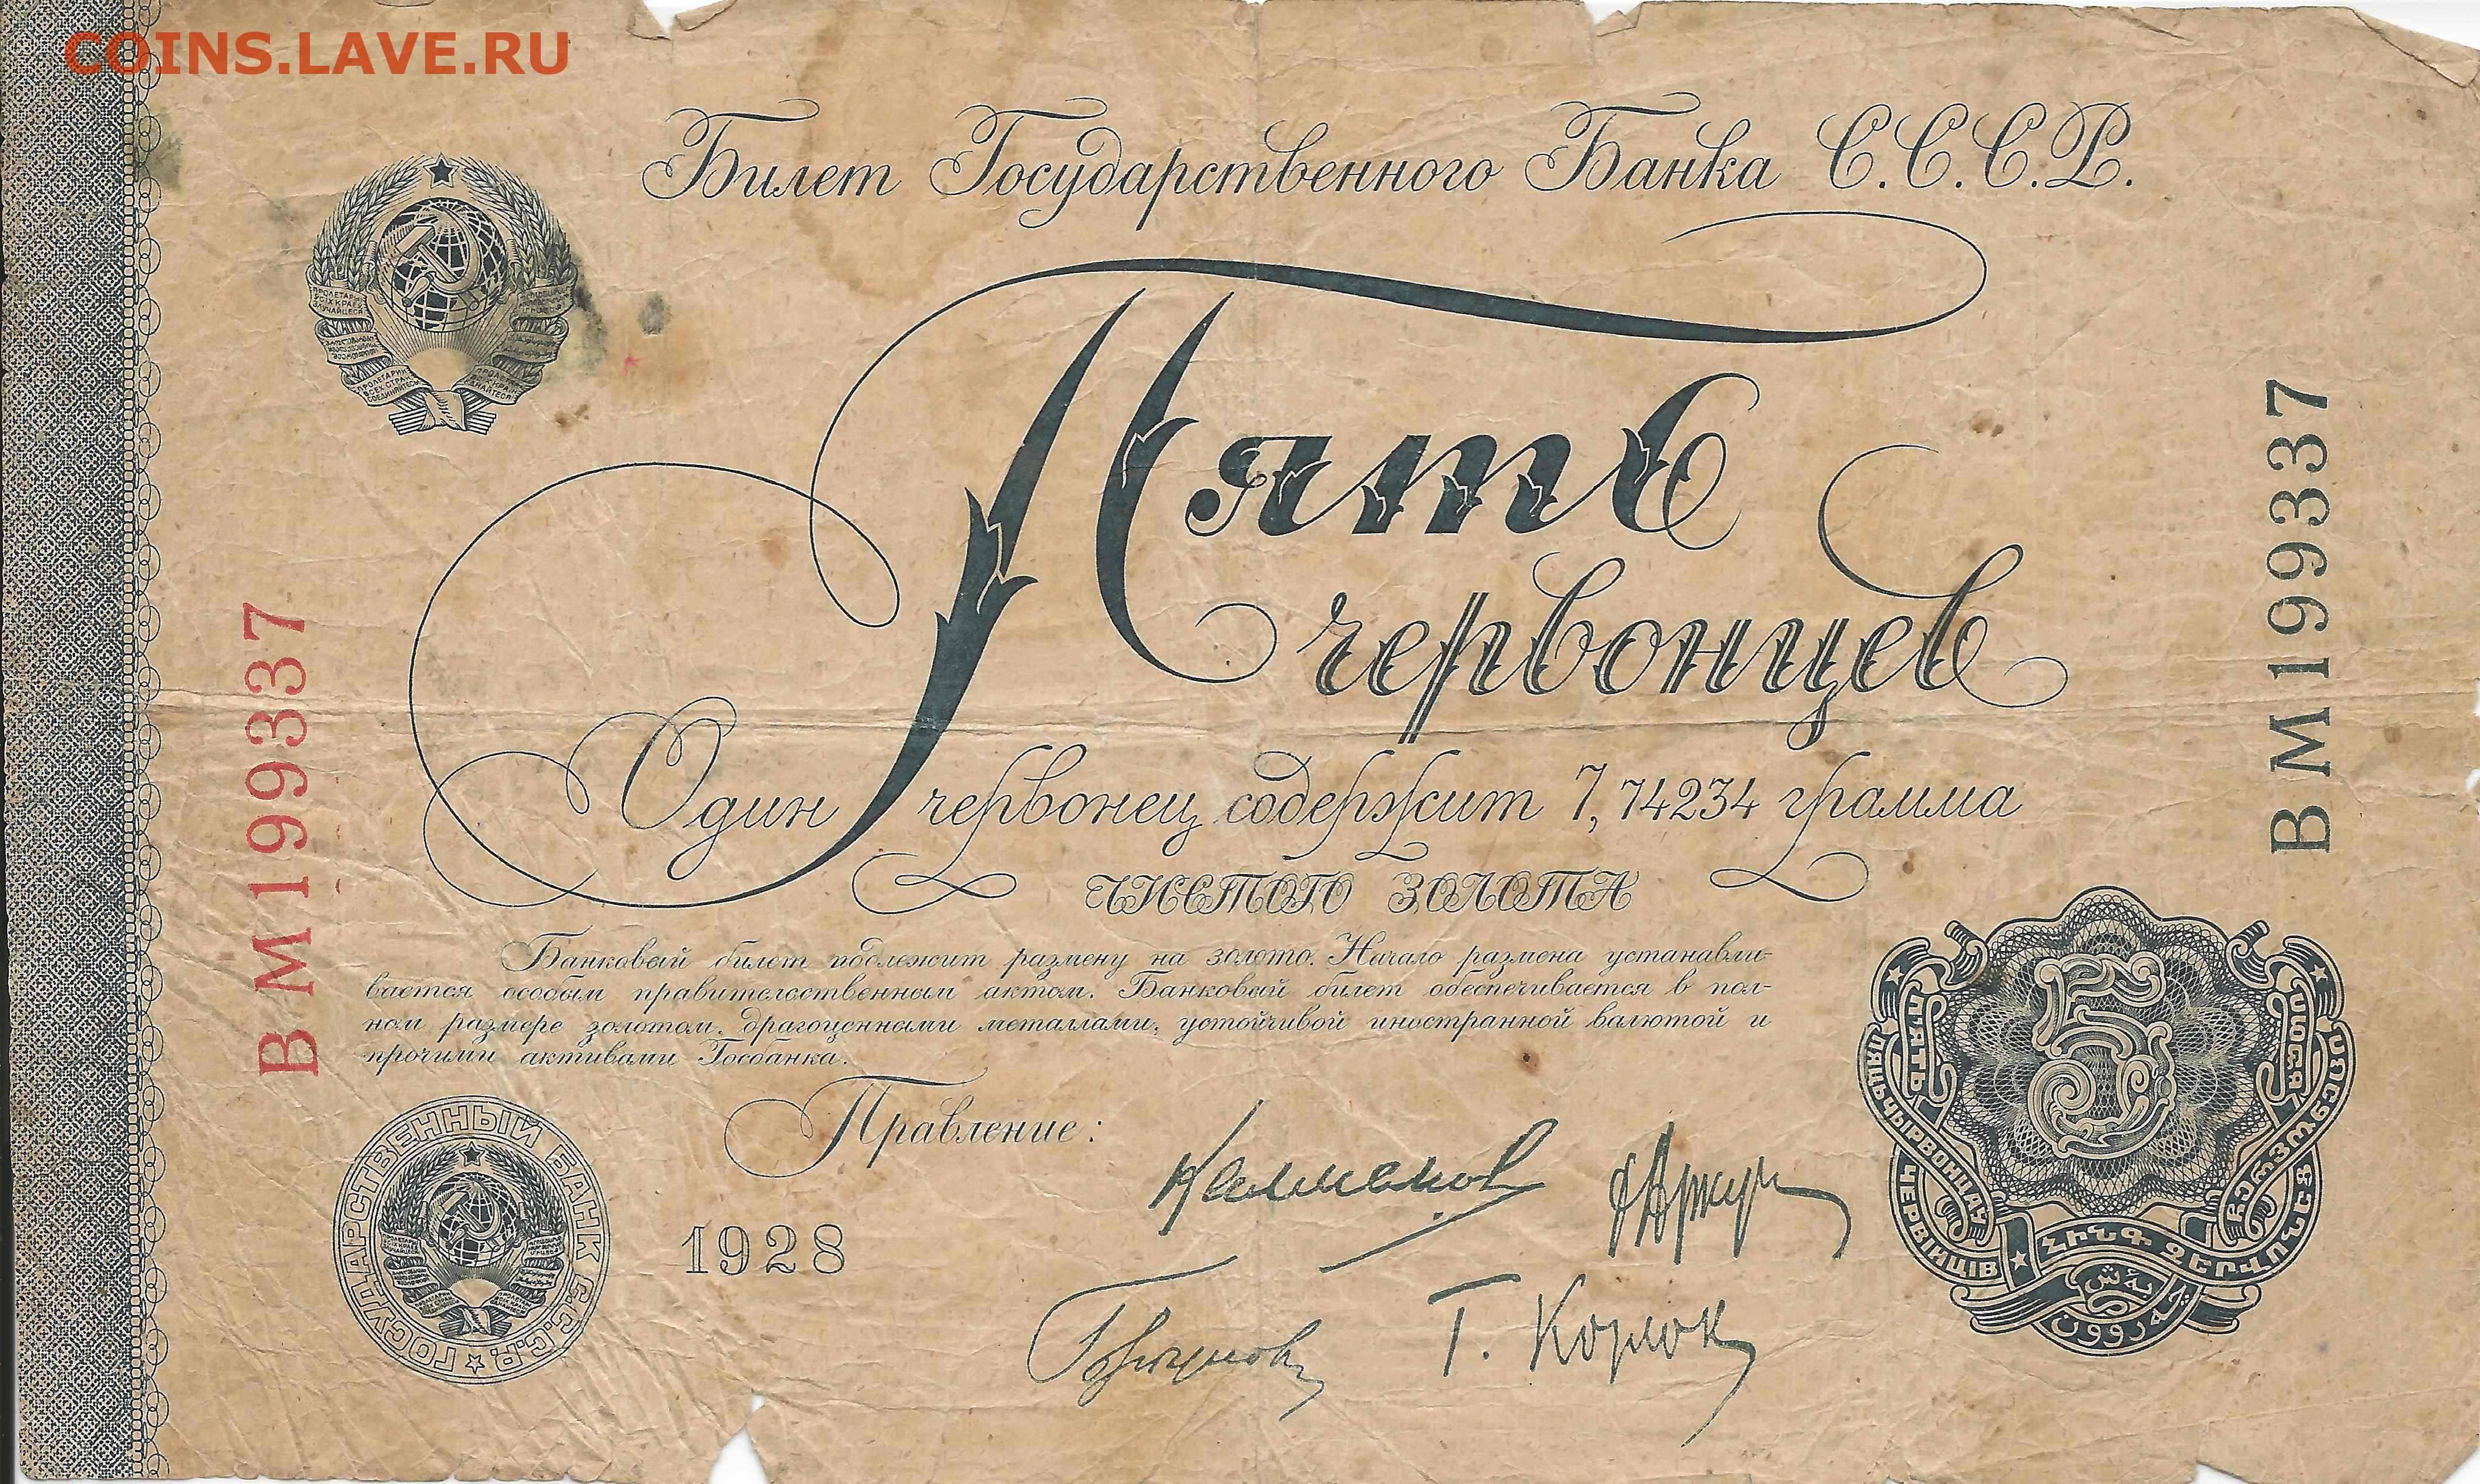 COINS.LAVE.RU
Билет Государственного Банка С.С.С.Р.
Пять
червонцев
Один червонец содержит 7,74234 грамма
ЧИСТОГО ЗОЛОТА
Банковый билет подлежит размену на золото. Начало размена устанавли-
вается особым правительственным актом. Банковый билет обеспечивается в пол-
ном размере золотом, драгоценными металлами, устойчивой иностранной валютой и
прочими активами Госбанка.
Правление:
1928
ВМ199337
ВМ199337
ГОСУДАРСТВЕННЫЙ БАНК С.С.С.Р.
ПРОЛЕТАРИИ
ВСЕХ СТРАН
СОЕДИНЯЙТЕСЬ
5
ПЯТЬ
ЧЕРВІНЦІВ
ՀԻՆԳ ՉԵՐՎՈՆԵՑ
Г.